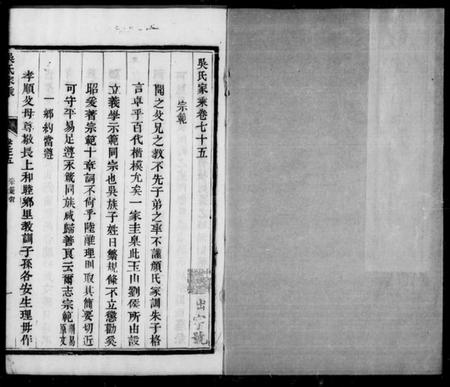 吳氏家乘卷七十五
宗範
聞之父兄之教不先子弟之率不謹顏氏家訓朱子格
言卓乎百代楷模尤矣一家圭臬此玉山劉侯所由設
立義學示範同宗也吳族子姓日繁規條不立懲勸奚
昭爰著宗範十章詞不尚乎陸離理則取其簡要切近
可守平易足遵承茲同族咸歸善良云爾志宗範
一鄉約當遵
孝順父母尊敬長上和睦鄉里教訓子孫各安生理毋作
吳氏家乘
出字號